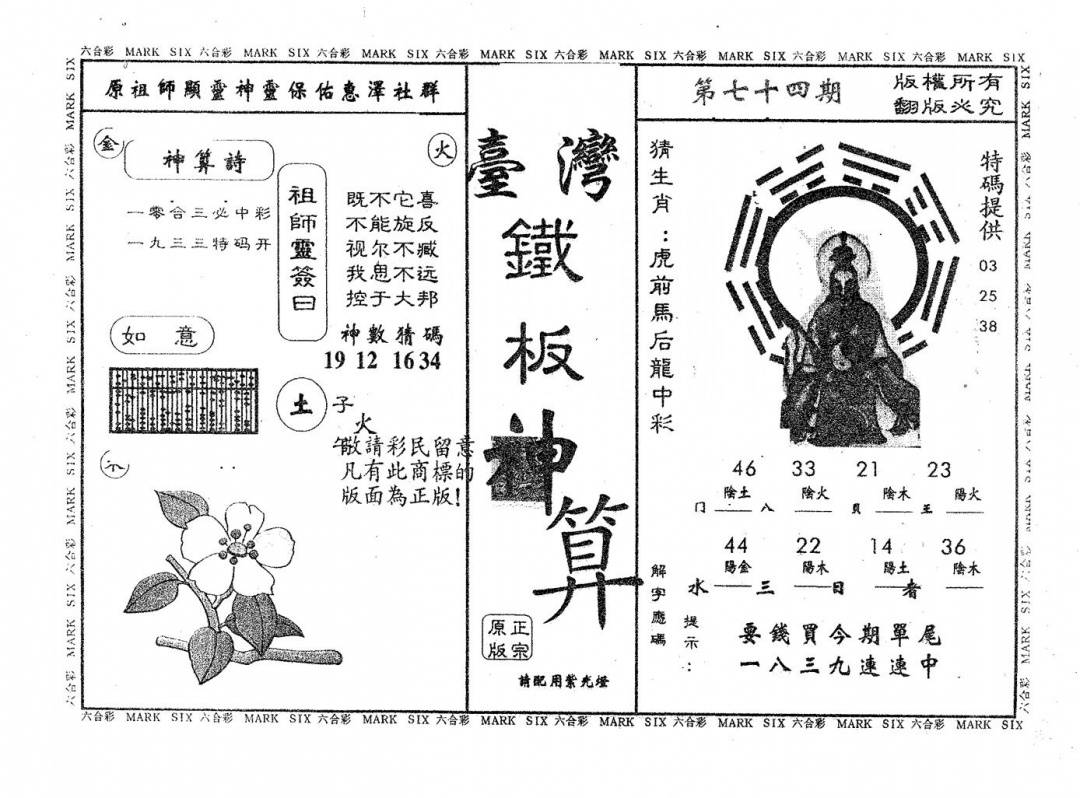 六合彩 MARK SIX 六合彩 MARK SIX 六合彩 MARK SIX 六合彩 MARK SIX 六合彩 MARK SIX 六合彩 MARK SIX 六合彩 MARK SIX 六合彩 MARK SIX
原祖師顯靈神靈保佑惠澤社群
金
神算詩
火
一零合三必中彩
一九三三特码开
祖師靈簽曰
既不它喜
不能旋反
视尔不臧
我思不远
控于大邦
神數猜碼
19 12 16 34
如意
土
子
火
午
敬請彩民留意
凡有此商標的
版面為正版!
臺灣
鐵
板
神
算
正宗
原版
請配用紫光燈
第七十四期
版權所有
翻版必究
猜生肖:虎前馬后龍中彩
特碼提供
03
25
38
46 33 21 23
陰土 陰火 陰木 陽火
门 八 貝 王
44 22 14 36
陽金 陽木 陽土 陰木
水 三 日 者
解字應碼
提示:
要錢買今期單尾
一八三九連連中
六合彩 MARK SIX 六合彩 MARK SIX 六合彩 MARK SIX 六合彩 MARK SIX 六合彩 MARK SIX 六合彩 MARK SIX 六合彩 MARK SIX 六合彩 MARK SIX